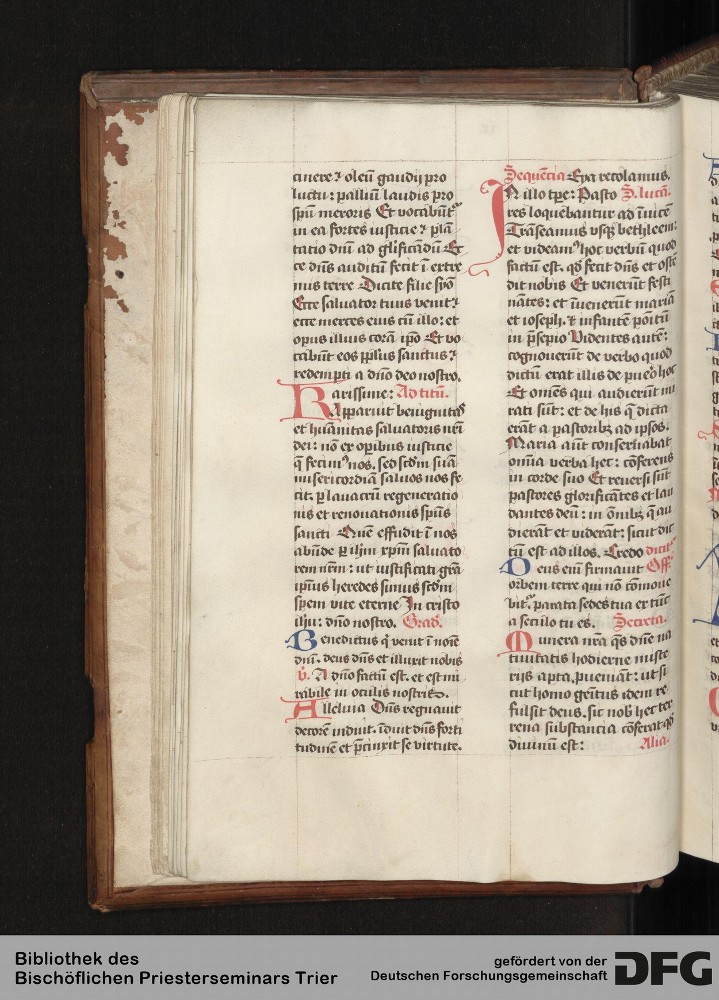 cinere ⁊ oleū gaudij pro
luctu: palliū laudis pro
spū meroris Et vocabūt᷑
in ea fortes iusticie ⁊ plā
tatio dn̄i ad glīficādū Ec
ce dn̄s auditū fecit ī extre
mis terre Dicite filie syō
Ecce saluator tuus venit ⁊
ecce merces eius cū illo: et
opus illius corā ip̄o Et vo
cabūt eos pp̄lus sanctus ⁊
redempti a dn̄o deo nostro.
Karissime: Ad titū.
Apparuit benignitas
et hūanitas saluatoris nr̄i
dei: nō ex opibus iusticie
q̄ fecimꝰ nos. sed scd̄m suā
misericordiā saluos nos fe
cit: p̱ lauacrū regeneratio
nis et renouationis sp̄us
sancti Quē effudit ī nos
abūde p̱ ih̄m xp̄m saluato
rem nr̄m: ut iustificati grā
ip̄ius heredes simus scd̄m
spem vite eterne In cristo
ih̄u: dn̄o nostro. Grad̄.
Benedictus q̇ venit ī noīe
dn̄i. deus dn̄s et illuxit nobis
v̄. A dn̄o factū est. et est mi
rabile in oculis nostris.
Alleluia Dn̄s regnauit
decorē induit. īduit dn̄s forti
tudinē et p̄cinxit se virtute.
Sequēcia Exa recolamus.
In illo tp̄e: Pasto S. lucā.
res loquebantur ad īuicē
Trāseamus usq̄ bethleem:
et videamꝰ hoc verbū quod
factū est. qd̄ fecit dn̄s et ostē
dit nobis Et venerūt festi
nātes: et īuenerūt mariā
et ioseph. ⁊ infantē po͏̄itū
in p̄sepio Videntes autē:
cognouerūt de verbo quod
dictū erat illis de puero hoc
Et omēs qui audierūt mi
rati sūt: et de his q̄ dicta
erāt a pastoribꝫ ad ipsos.
Maria aūt conseruabat
om̄ia verba hec: cōferens
in corde suo Et reuersi sūt
pastores glorificātes et lau
dantes deū: in om̄ibꝫ q̄ au
dierāt et viderāt: sicut dic
tū est ad illos. Credo dicit᷑
Deus eni firmauit Off᷑
orbem terre qui nō cōmoue
bit᷑. parata sedes tua ex tūc
a seculo tu es. Secreta.
Munera nr̄a q̄s dn̄e na
tiuitatis hodierne miste
rijs apta, p̱ueniāt: ut si
cut homo genitus idem re
fulsit deus. sic nob̄ hec ter
rena substancia cōferat qd̄
diuinū est: Alia.
Bibliothek des
Bischöflichen Priesterseminars Trier
gefördert von der
Deutschen Forschungsgemeinschaft
DFG